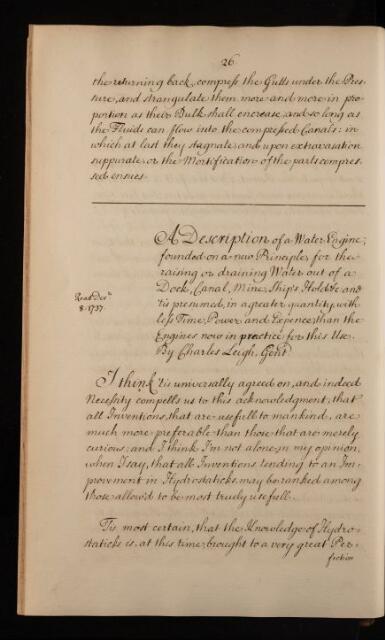 26
the returning back, compress the Gutts under the Pres-
sure, and strangulate them more and more in pro-
portion as their Bulk shall encrease, and so long as
the Fluids can flow into the compressed Canals: in
which at last they stagnate, and upon extravasation
suppurate, or the Mortification of the parts compres-
sed ensues.
A Description of a Water Engine,
founded on a new Principle, for the
raising or draining Water out of a
Dock, Canal, Mine, Ship's Hold &c and
'tis presumed, in a greater quantity, with
less Time, Power and Expence, than the
Engines now in practice for this Use.
By Charles Leigh, Gent
Read Decr
8. 1737.
I think 'tis universally agreed on, and indeed
Necessity compells us to this acknowledgment, that
all Inventions, that are usefull to mankind, are
much more preferable than those that are merely
curious: and I think I'm not alone, in my opinion,
when I say, that all Inventions tending to an Im-
provement in Hydrostaticks, may be ranked among
those allow'd to be most truely usefull.
'Tis most certain, that the Knowledge of Hydro-
staticks is, at this time, brought to a very great Per-
fection